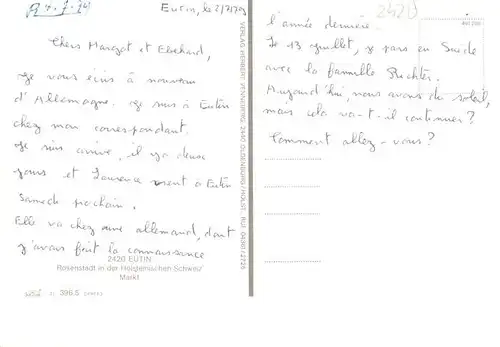 Eutin, le 2/7/79
Chers Margot et Eberhard,
Je vous écris à nouveau
d'Allemagne. Je suis à Eutin
chez mon correspondant.
Je suis arrivé, il y a deux
jours et Laurence vient à Eutin
Samedi prochain.
Elle va chez une allemande, dont
j'avais fait la connaissance
2420 EUTIN
Rosenstadt in der Holsteinischen Schweiz
Markt
396.5
VERLAG HERBERT VENNEBRING, 2440 OLDENBURG/HOLST. RUF 04361/2725
2420
l'année dernière.
Le 13 juillet, je pars en Suède
avec la famille Richter.
Aujourd'hui, nous avons du soleil,
mais cela va-t-il continuer?
Comment allez-vous?